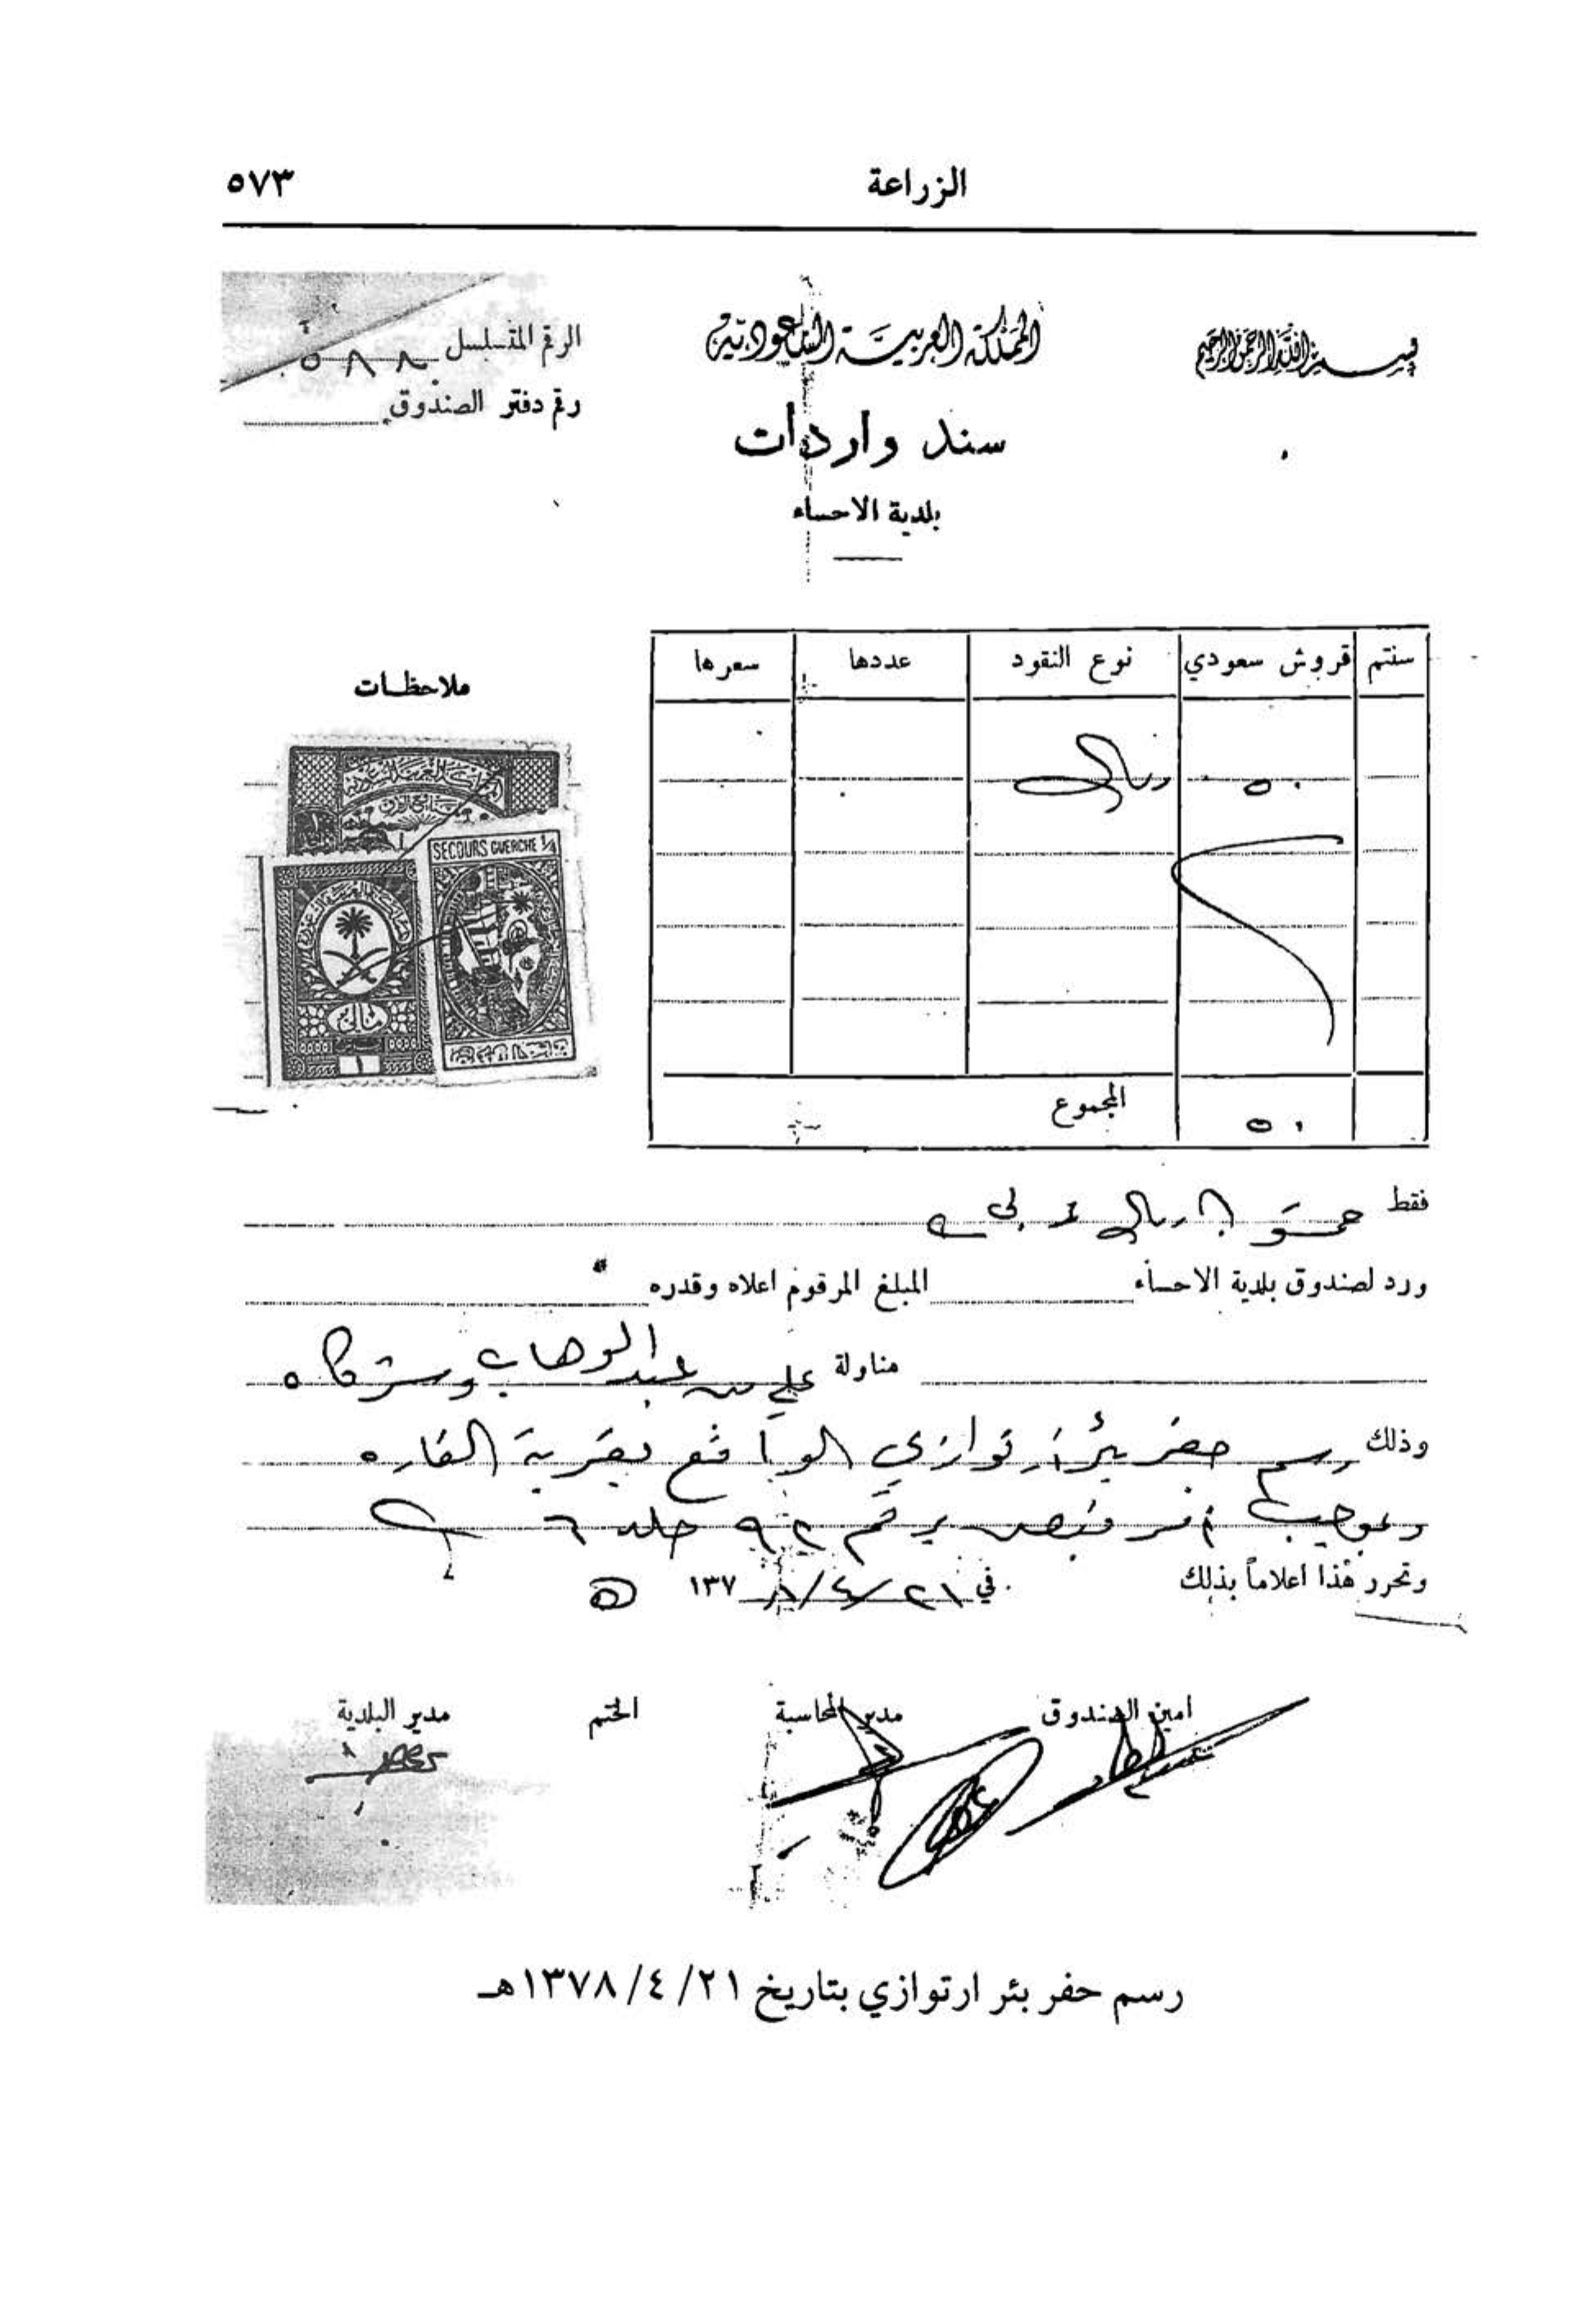 الزراعة ٥٧٣
بسم الله الرحمن الرحيم
المملكة العربية السعودية
الرقم المتسلسل ٥٨٨
رقم دفتر الصندوق
سند واردات
بلدية الاحساء
سنتم قروش سعودي نوع النقود عددها سعرها
٥٠ ريال
المجموع
٥٠
ملاحظات
المملكة العربية السعودية
SECOURS GUERCHE 1/4
١
فقط خمسون ريال عربي
ورد لصندوق بلدية الاحساء المبلغ المرقوم اعلاه وقدره
مناولة علي بن عبد الوهاب وشركاه
وذلك رسم حفر بئر ارتوازي الواقع بقرية القاره
وبموجب امر قبض رقم ٩٢ جلد ٦
وتحرر هذا اعلاماً بذلك في ٢١/٤/١٣٧٨
امين الصندوق مدير المحاسبة الختم مدير البلدية
رسم حفر بئر ارتوازي بتاريخ ٢١/ ٤/ ١٣٧٨هـ